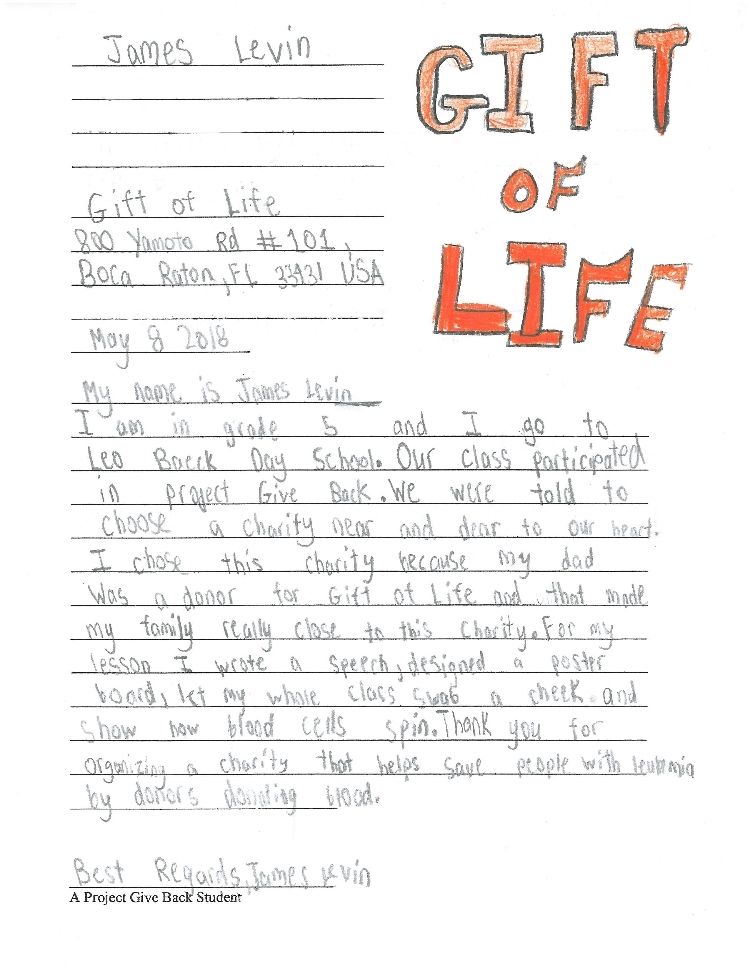 James Levin
GIFT
OF
LIFE
Gift of Life
800 Yamoto Rd #101,
Boca Raton, FL 33431 USA
May 8 2018
My name is James Levin
I am in grade 5 and I go to
Leo Baeck Day School. Our class participated
in project Give Back. We were told to
choose a charity near and dear to our heart.
I chose this charity because my dad
was a donor for Gift of Life and that made
my family really close to this charity. For my
lesson I wrote a speech, designed a poster
board, let my whole class swab a cheek and
show how blood cells spin. Thank you for
organizing a charity that helps save people with leukmia
by donors donating blood.
Best Regards, James Levin
A Project Give Back Student